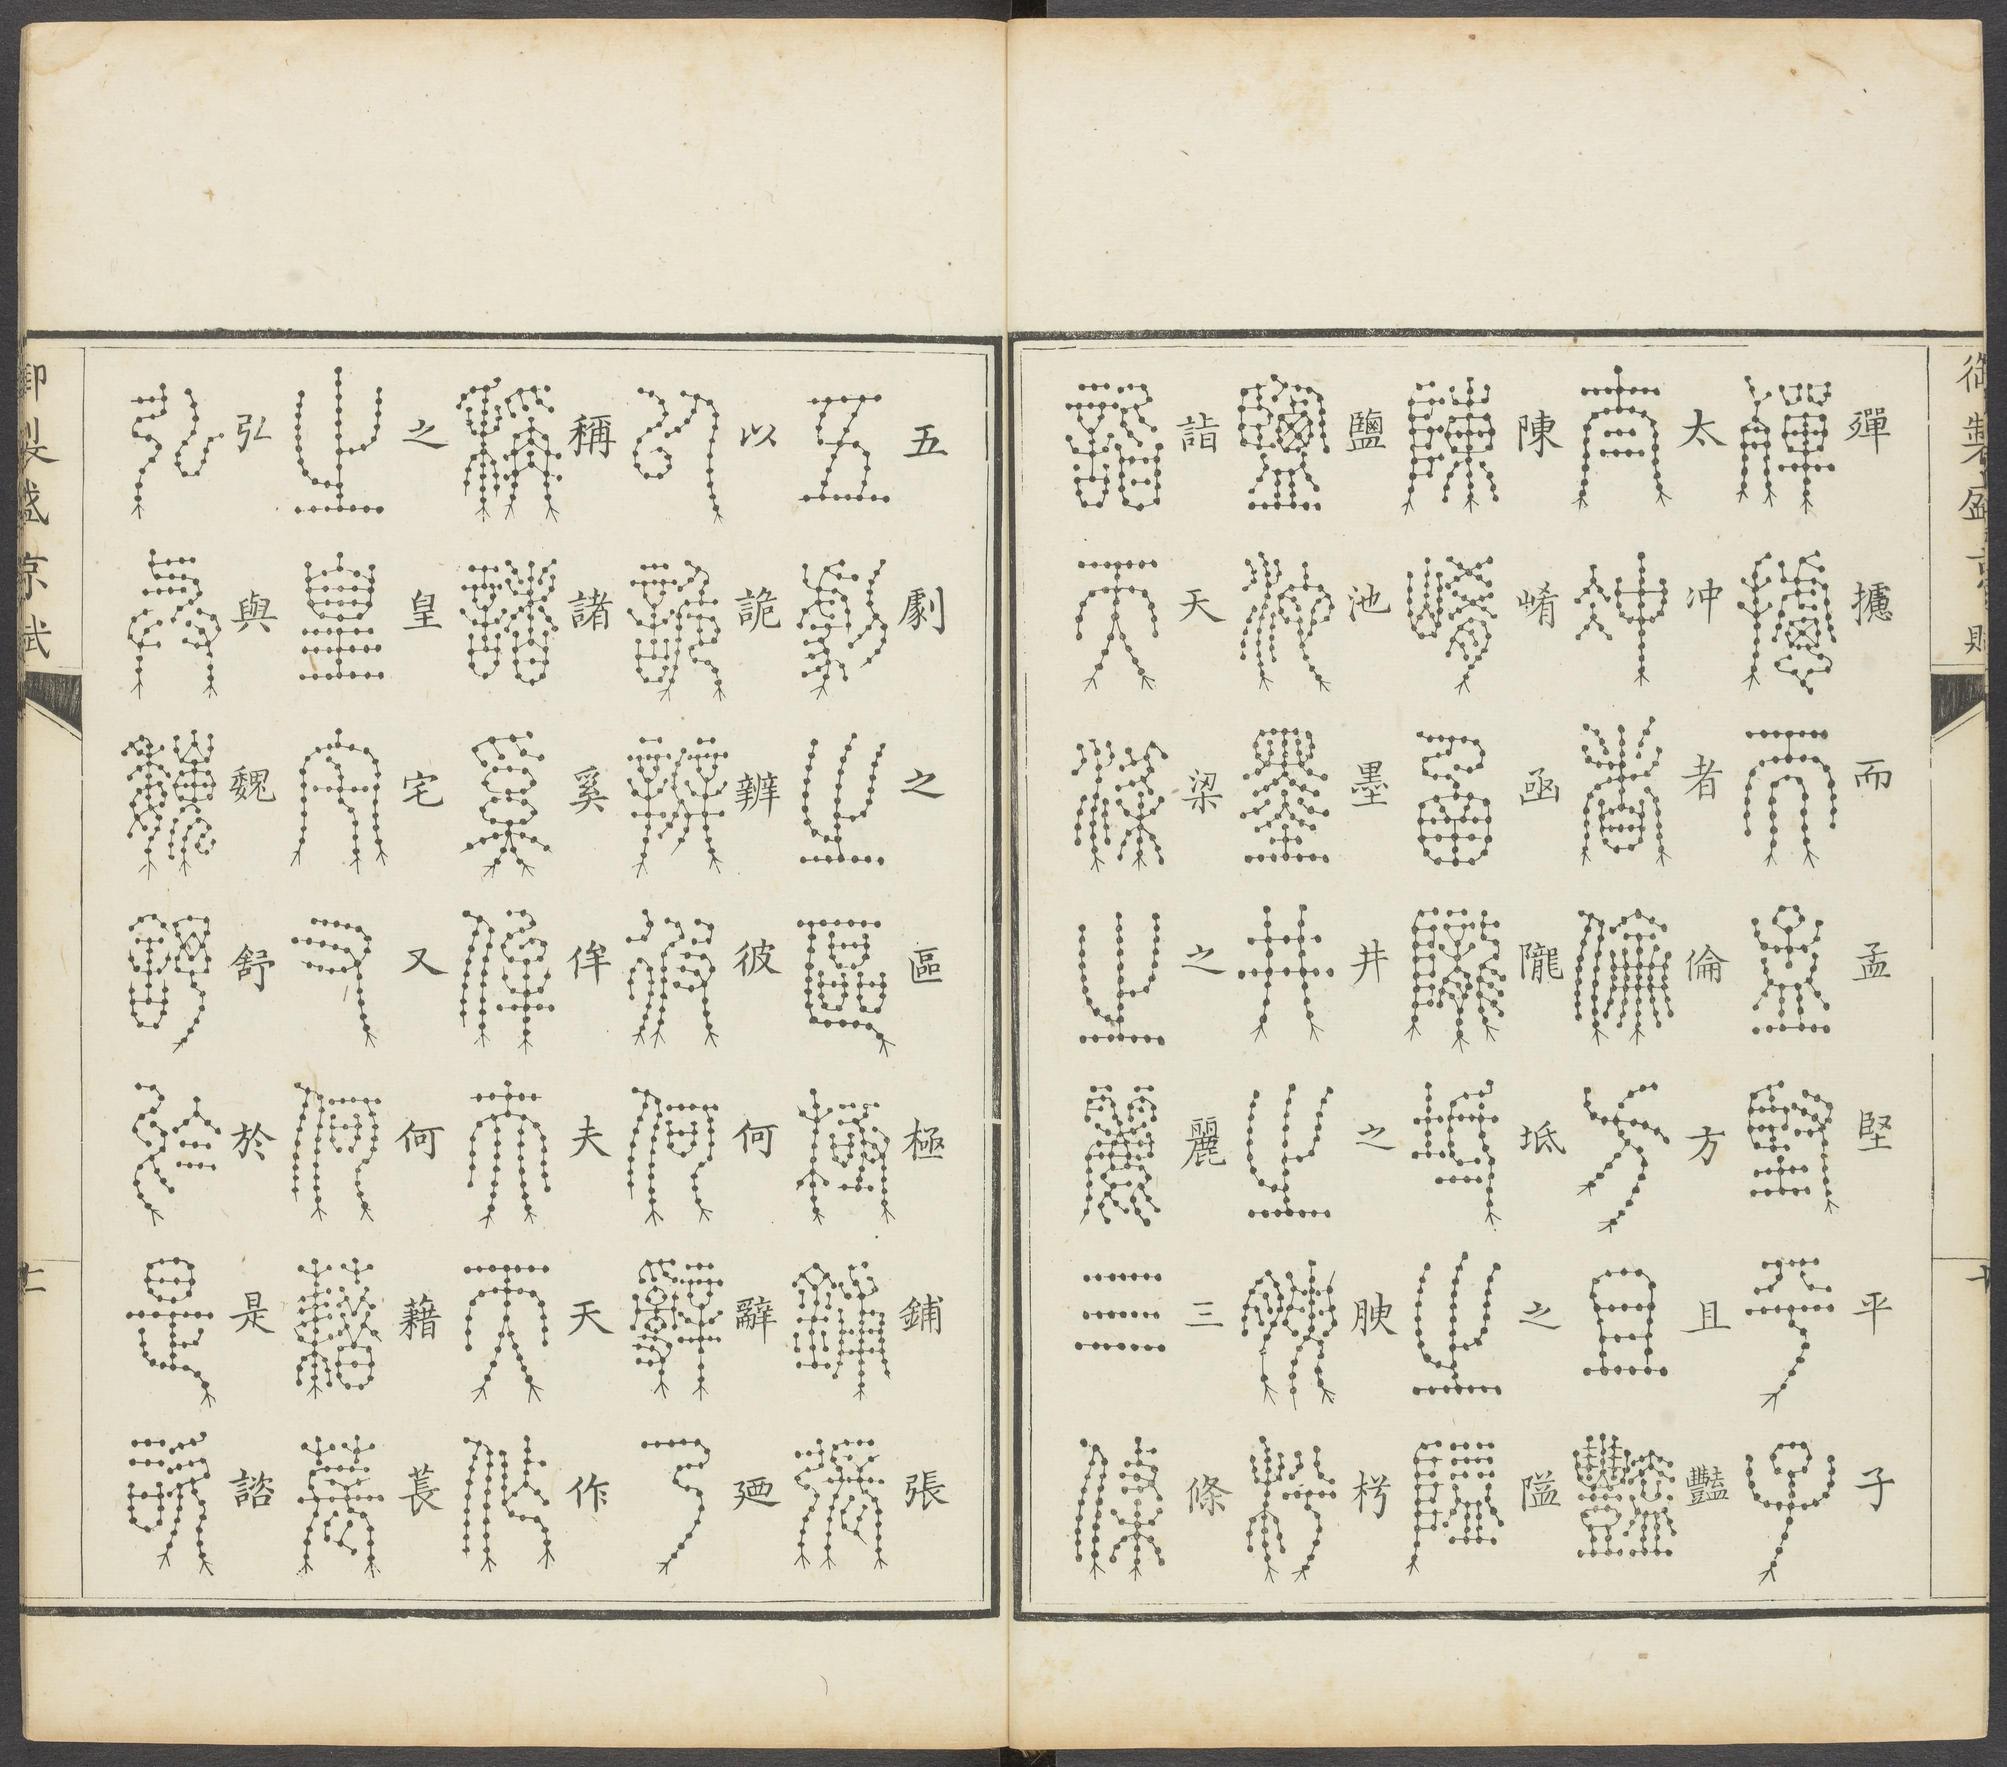 御製盛京賦
殫攄而孟堅平子
太冲者倫方且豔
陳崤函隴坻之隘
鹽池墨井之腴枵
詣天梁之麗三條
五劇之區極鋪張
以詭辨彼何辭廼
稱諸奚侔夫天作
之皇宅又何藉萇
弘與魏舒於是諮
御製盛京賦